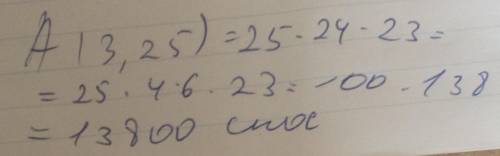 A(3,25)=25·24·23=
=25·4·6·23=100·138
=13800 спос